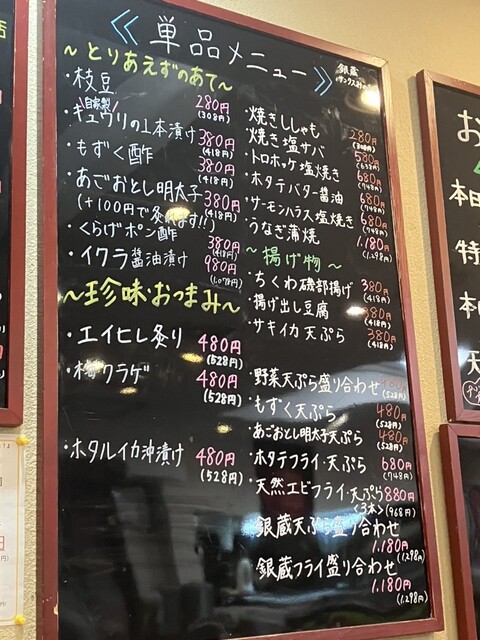 《単品メニュー》
銀蔵
~とりあえずのあて~
・枝豆 280円 (308円)
自家製
・キュウリの1本漬け 380円 (418円)
・もずく酢 380円 (418円)
・あごおとし明太子 380円 (418円)
(+100円で炙れます!!)
・くらげポン酢 380円 (418円)
・イクラ醤油漬け 980円 (1,078円)
~珍味・おつまみ~
・エイヒレ炙り 480円 (528円)
・梅クラゲ 480円 (528円)
・ホタルイカ沖漬け 480円 (528円)
・焼きししゃも 280円 (308円)
・焼き塩サバ 580円 (638円)
・トロホッケ塩焼き 680円 (748円)
・ホタテバター醤油 680円 (748円)
・サーモンハラス塩焼き 680円 (748円)
・うなぎ蒲焼 1,180円 (1,298円)
~揚げ物~
・ちくわ磯部揚げ 380円 (418円)
・揚げ出し豆腐 380円 (418円)
・サキイカ天ぷら 380円 (418円)
・野菜天ぷら盛り合わせ 480円 (528円)
・もずく天ぷら 480円 (528円)
・あごおとし明太子天ぷら 480円 (528円)
・ホタテフライ・天ぷら 680円 (748円)
・天然エビフライ・天ぷら 880円
<3本> (968円)
・銀蔵天ぷら盛り合わせ
1,180円 (1,298円)
・銀蔵フライ盛り合わせ
1,180円 (1,298円)
お
本日
特
本
天